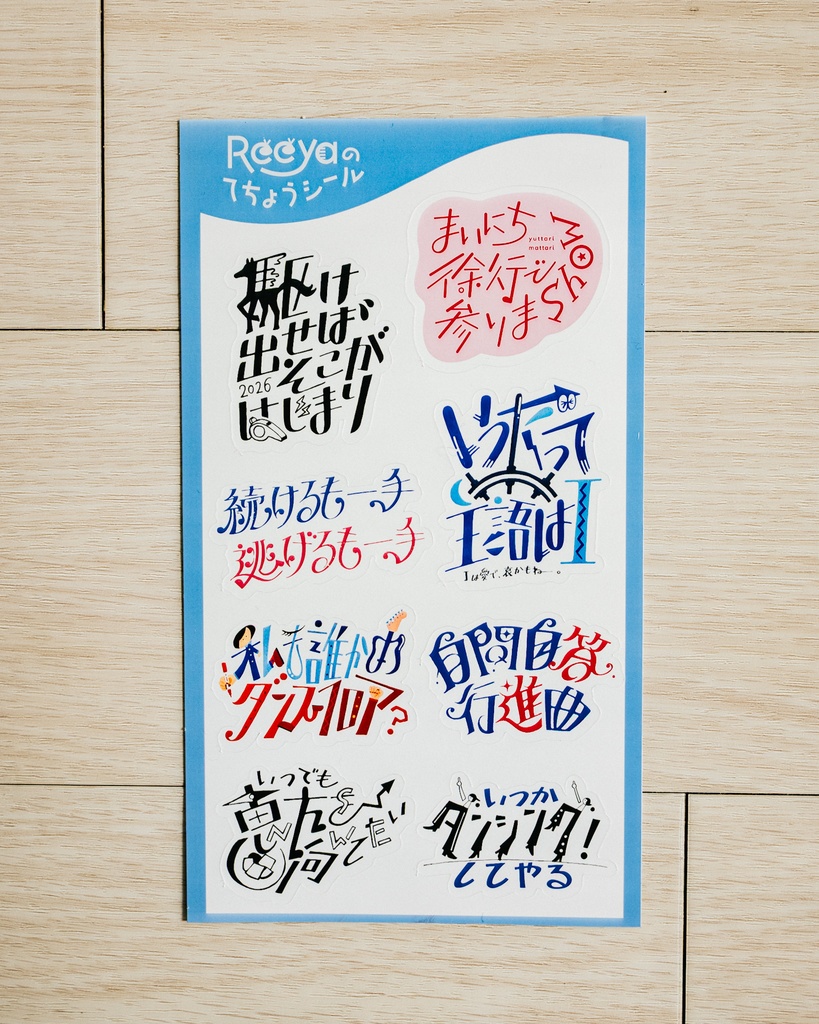 Reeyaの
てちょうシール
駆け
出せば
そこが
2026
はじまり
まいにち
yuttari
mattari
徐行で
参りまShow
続けるも一手
逃げるも一手
いつだって
主語はI
Iは愛で、哀かもね—。
私も誰かの
ダンスフロア?
自問自答
行進曲
いつでも
いつか
ダンシング!
してやる